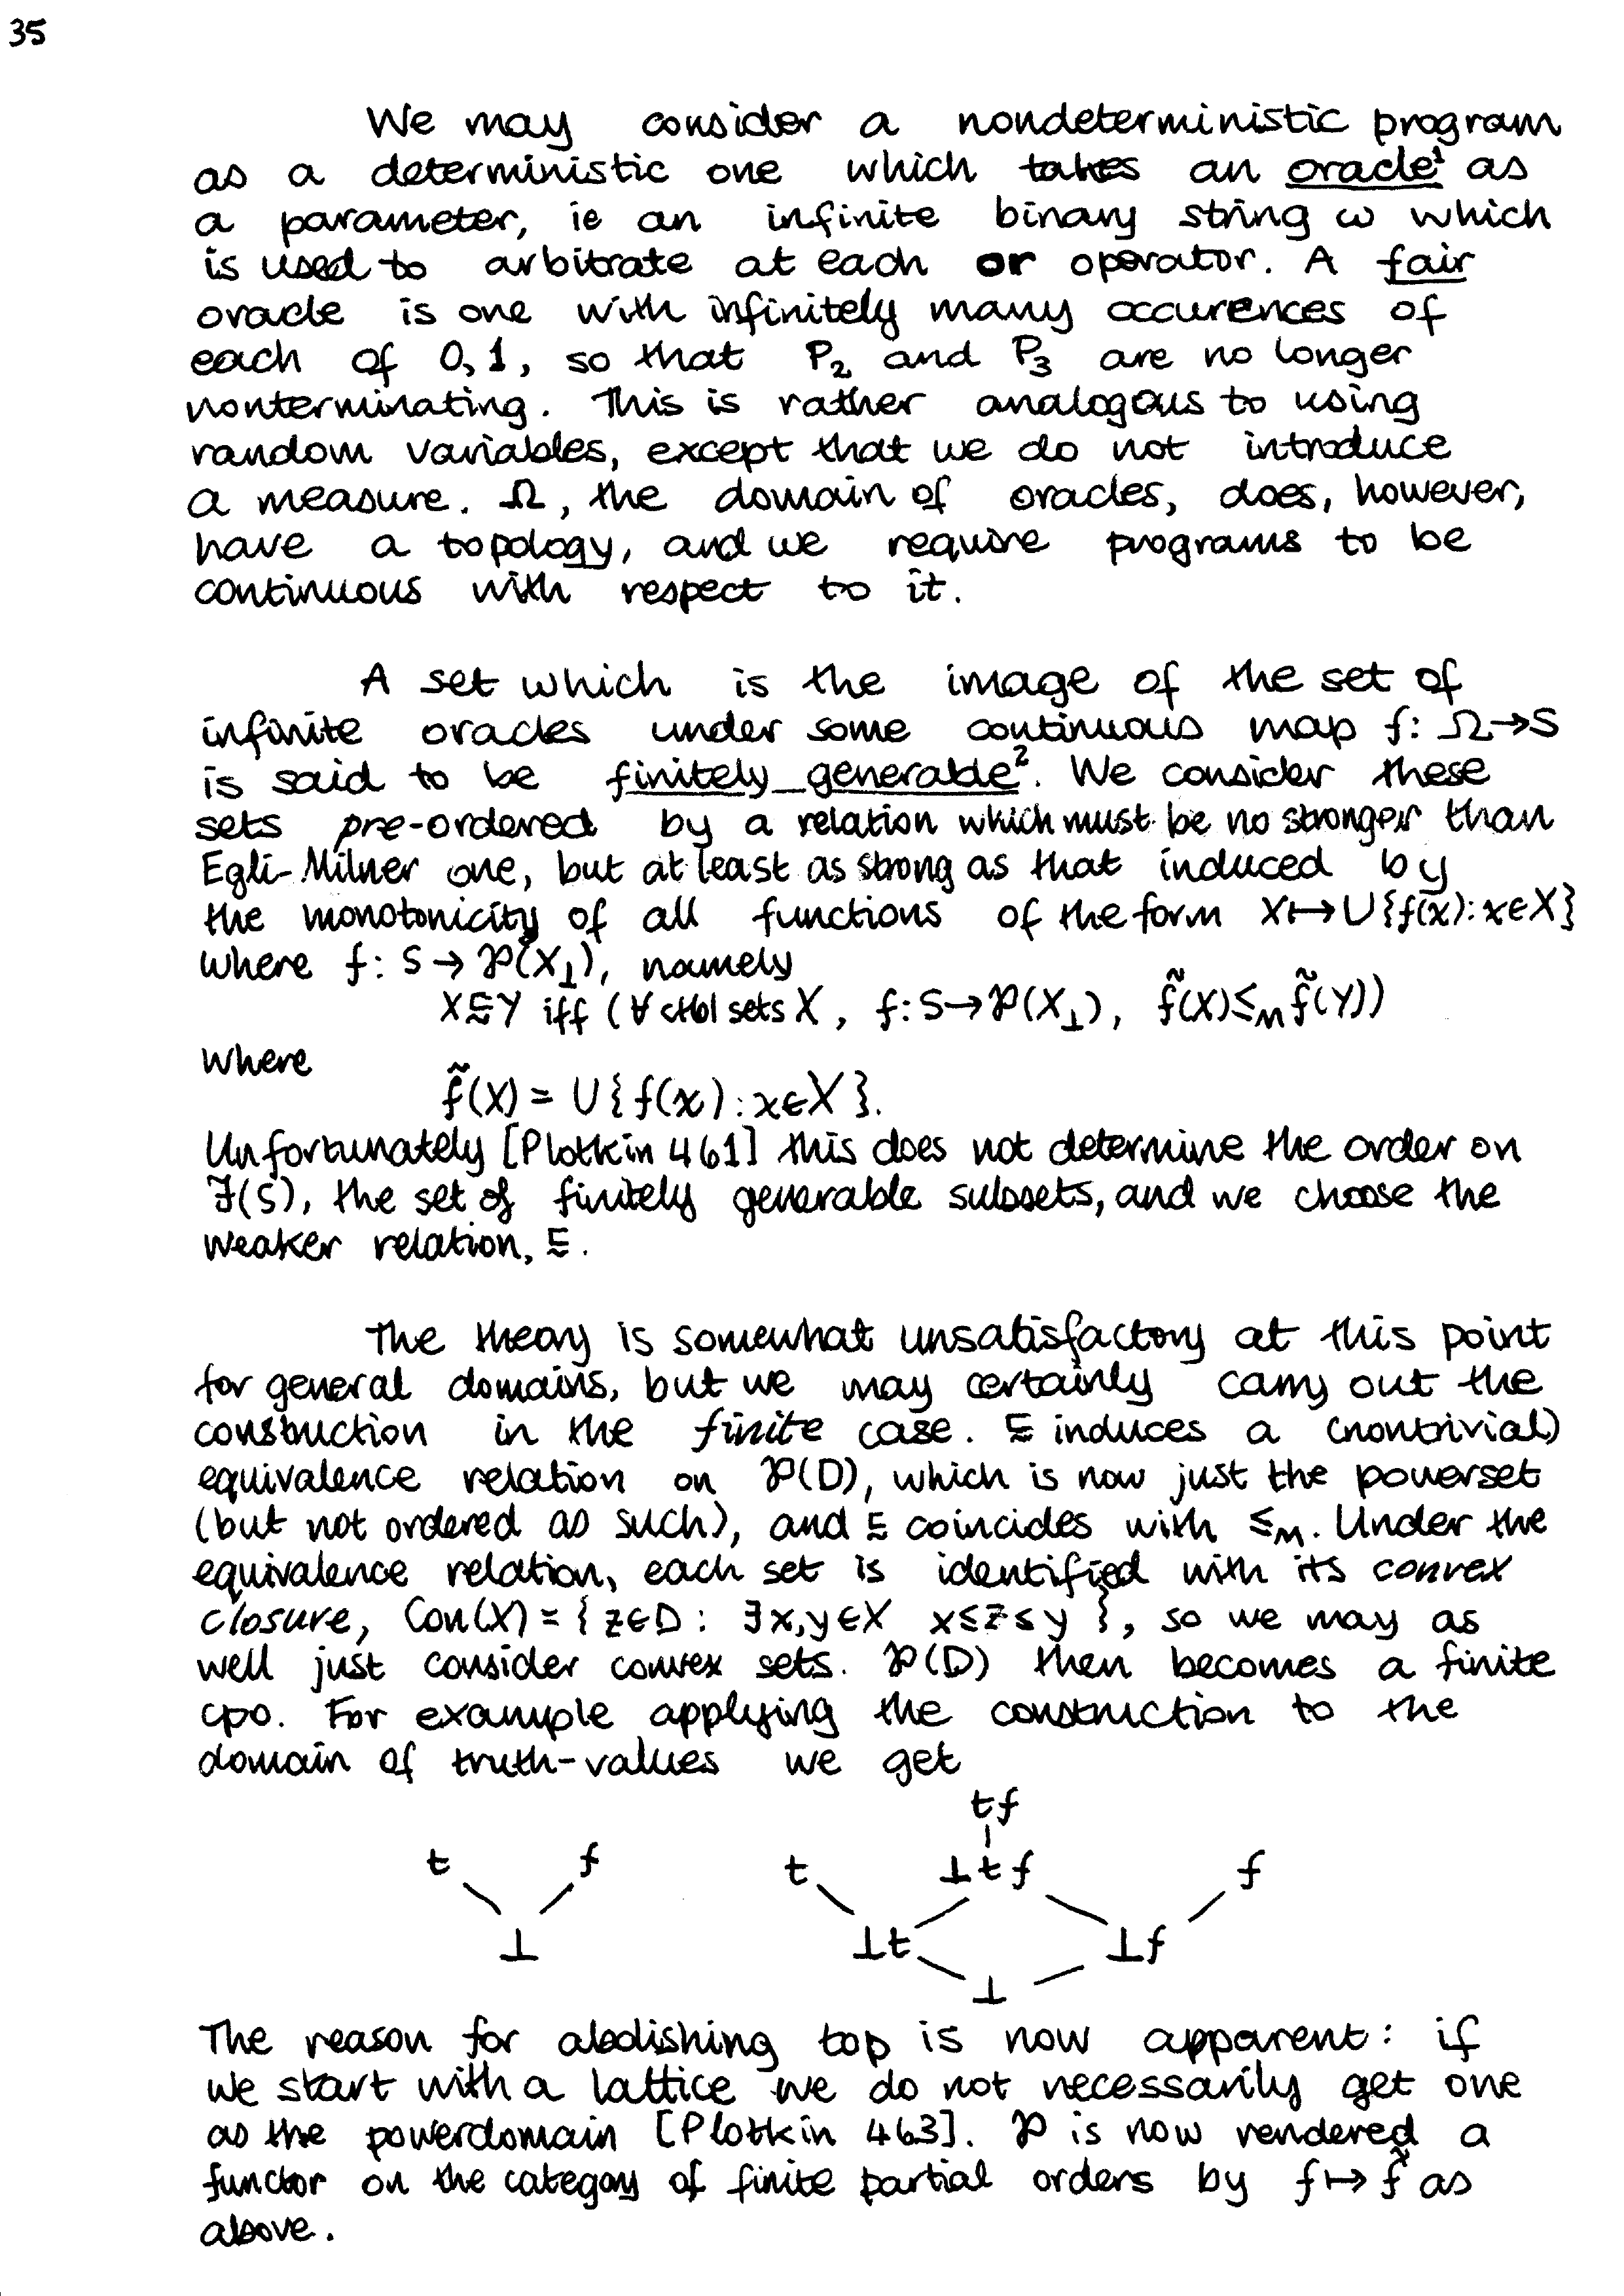 35
We may consider a nondeterministic program
as a deterministic one which takes an oracle¹ as
a parameter, ie an infinite binary string ω which
is used to arbitrate at each or operator. A fair
oracle is one with infinitely many occurences of
each of 0,1, so that P₂ and P₃ are no longer
nonterminating. This is rather analogous to using
random variables, except that we do not introduce
a measure. Ω, the domain of oracles, does, however,
have a topology, and we require programs to be
continuous with respect to it.
A set which is the image of the set of
infinite oracles under some continuous map f: Ω→S
is said to be finitely generable². We consider these
sets pre-ordered by a relation which must be no stronger than
Egli-Milner one, but at least as strong as that induced by
the monotonicity of all functions of the form X↦∪{f(x):x∈X}
where f: S→℘(X⊥), namely
X⊑Y iff (∀ ctbl sets X, f:S→℘(X⊥), f̃(X)≤ₘf̃(Y))
where
f̃(X) = ∪{f(x):x∈X}.
Unfortunately [Plotkin 461] this does not determine the order on
ℱ(S), the set of finitely generable subsets, and we choose the
weaker relation, ⊑.
The theory is somewhat unsatisfactory at this point
for general domains, but we may certainly carry out the
construction in the finite case. ⊑ induces a (nontrivial)
equivalence relation on ℘(D), which is now just the powerset
(but not ordered as such), and ⊑ coincides with ≤ₘ. Under the
equivalence relation, each set is identified with its convex
closure, Con(X) = {z∈D: ∃x,y∈X x≤z≤y}, so we may as
well just consider convex sets. ℘(D) then becomes a finite
cpo. For example applying the construction to the
domain of truth-values we get
tf
t f t ⊥tf f
⊥ ⊥t ⊥f
⊥
The reason for abolishing top is now apparent: if
we start with a lattice we do not necessarily get one
as the powerdomain [Plotkin 463]. ℘ is now rendered a
functor on the category of finite partial orders by f↦f̃ as
above.